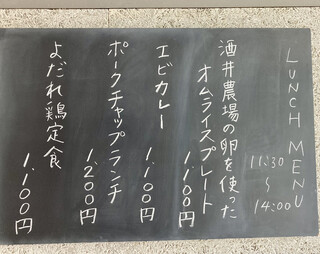 LUNCH MENU
11:30
〜
14:00
酒井農場の卵を使った
オムライスプレート
1,100円
エビカレー
1,100円
ポークチャップランチ
1,200円
よだれ鶏定食
1,100円